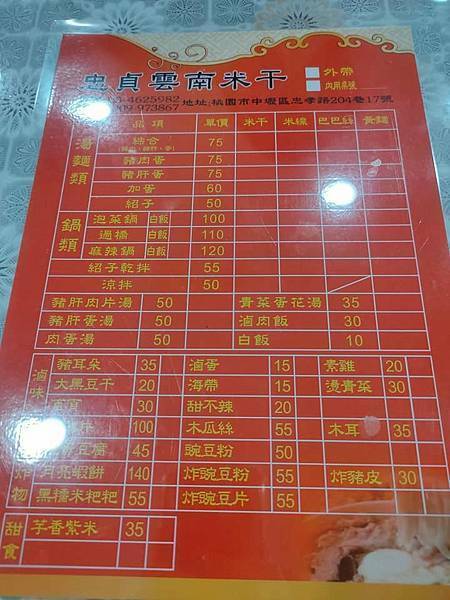 忠貞雲南米干
外帶
內用桌號
4625982
973867 地址:桃園市中壢區忠孝路204巷17號
品項 單價 米干 米線 巴巴絲 黃麵
湯麵類
綜合 75
豬肉蛋 75
豬肝蛋 75
加蛋 60
紹子 50
鍋類
泡菜鍋 白飯 100
過橋 白飯 110
麻辣鍋 白飯 120
紹子乾拌 55
涼拌 50
豬肝肉片湯 50 青菜蛋花湯 35
豬肝蛋湯 50 滷肉飯 30
肉蛋湯 50 白飯 10
滷味
豬耳朵 35 滷蛋 15 素雞 20
大黑豆干 20 海帶 15 燙青菜 30
30 甜不辣 20
片 100 木瓜絲 55 木耳 35
豆腐 45 豌豆粉 50
炸物
月亮蝦餅 140 炸豌豆粉 55 炸豬皮 30
黑糯米粑粑 55 炸豌豆片 55
甜食
芋香紫米 35